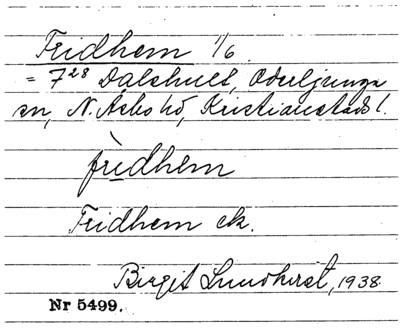 Fridhem 1/6
= 7²⁸ Dalshult, Oderljunga
sn, N. Åsbo hd, Kristianstads l.
frìdhem
Fridhem ek.
Birgit Lundkvist, 1938
Nr 5499.